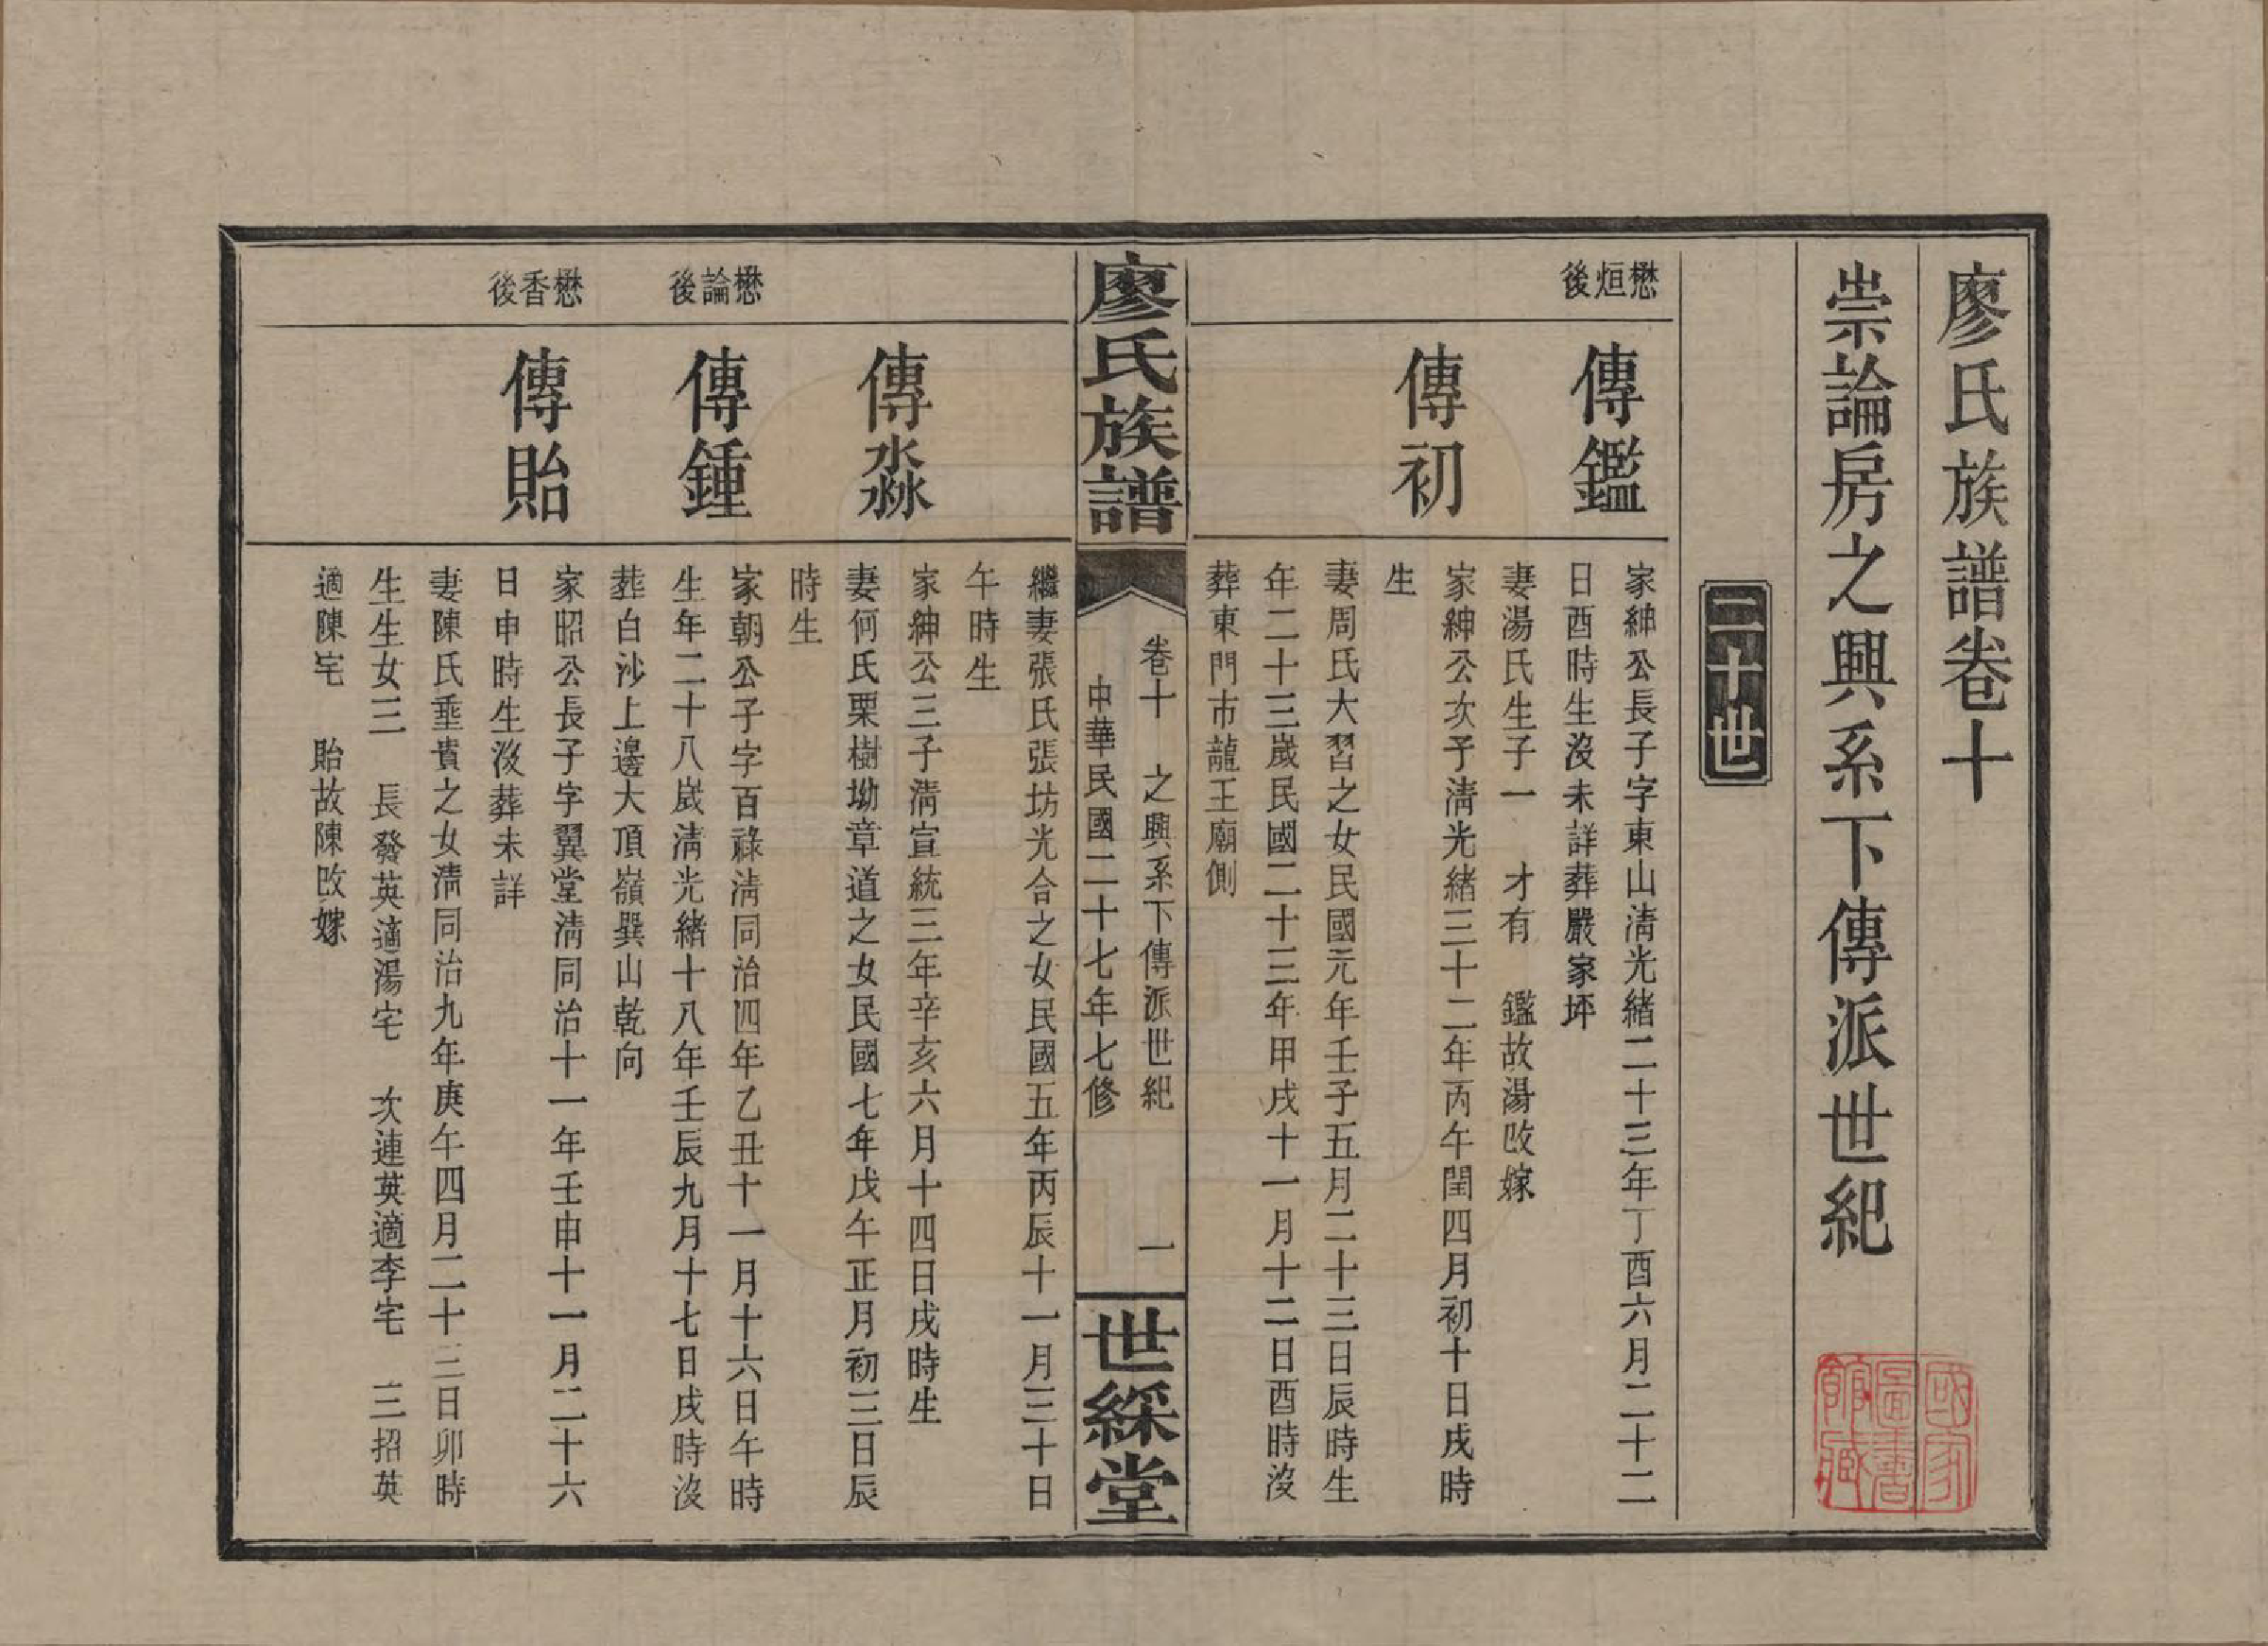 廖氏族譜卷十
崇論房之興系下傳派世紀
二十世
懋烜後
傳鑑
家紳公長子字東山淸光緒二十三年丁酉六月二十二
日酉時生沒未詳葬嚴家坪
妻湯氏生子一　才有　鑑故湯改嫁
傳初
家紳公次子淸光緒三十二年丙午閏四月初十日戌時
生
妻周氏大習之女民國元年壬子五月二十三日辰時生
年二十三歲民國二十三年甲戌十一月十二日酉時沒
葬東門市龍王廟側
廖氏族譜
卷十　之興系下傳派世紀　一
中華民國二十七年七修
世綵堂
繼妻張氏張坊光合之女民國五年丙辰十一月三十日
午時生
傳淼
家紳公三子淸宣統三年辛亥六月十四日戌時生
妻何氏栗樹坳章道之女民國七年戊午正月初三日辰
時生
懋論後
傳鍾
家朝公子字百祿淸同治四年乙丑十一月十六日午時
生年二十八歲淸光緒十八年壬辰九月十七日戌時沒
葬白沙上邊大頂嶺巽山乾向
懋香後
傳貽
家昭公長子字翼堂淸同治十一年壬申十一月二十六
日申時生沒葬未詳
妻陳氏垂貴之女淸同治九年庚午四月二十三日卯時
生生女三　長發英適湯宅　次連英適李宅　三招英
適陳宅　貽故陳改嫁
國家圖書館藏